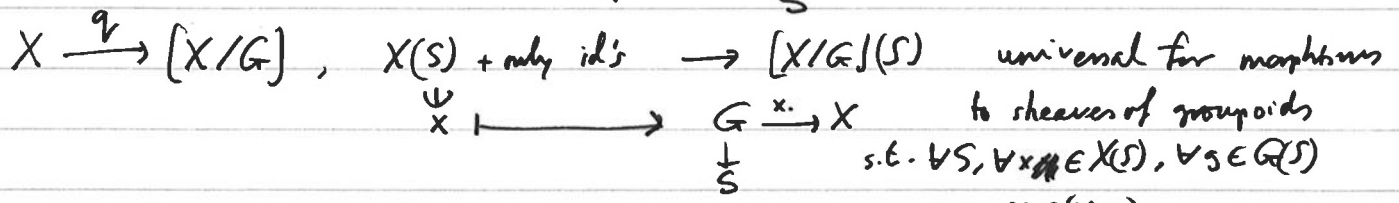 X →^q [X/G], X(S) + only id's → [X/G](S) universal for morphisms
x ↦ G →^{x.} X to sheaves of groupoids
↓ S s.t. ∀S, ∀x ∈ X(S), ∀g ∈ G(S)